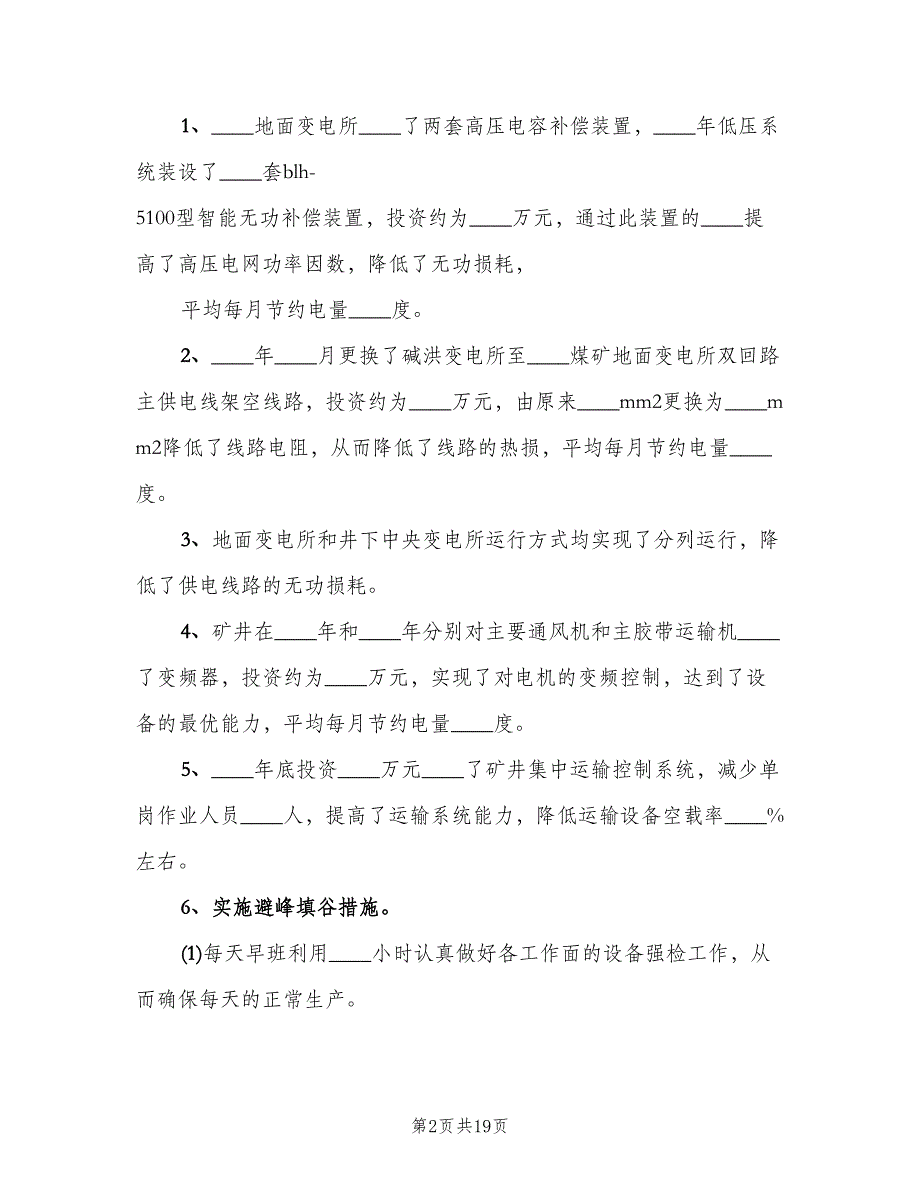 1、____地面变电所____了两套高压电容补偿装置，____年低压系
统装设了____套blh-
5100型智能无功补偿装置，投资约为____万元，通过此装置的____提
高了高压电网功率因数，降低了无功损耗，
平均每月节约电量____度。
2、____年____月更换了碱洪变电所至____煤矿地面变电所双回路
主供电线架空线路，投资约为____万元，由原来____mm2更换为____m
m2降低了线路电阻，从而降低了线路的热损，平均每月节约电量____
度。
3、地面变电所和井下中央变电所运行方式均实现了分列运行，降
低了供电线路的无功损耗。
4、矿井在____年和____年分别对主要通风机和主胶带运输机____
了变频器，投资约为____万元，实现了对电机的变频控制，达到了设
备的最优能力，平均每月节约电量____度。
5、____年底投资____万元____了矿井集中运输控制系统，减少单
岗作业人员____人，提高了运输系统能力，降低运输设备空载率____%
左右。
6、实施避峰填谷措施。
(1)每天早班利用____小时认真做好各工作面的设备强检工作，从
而确保每天的正常生产。
第2页共19页